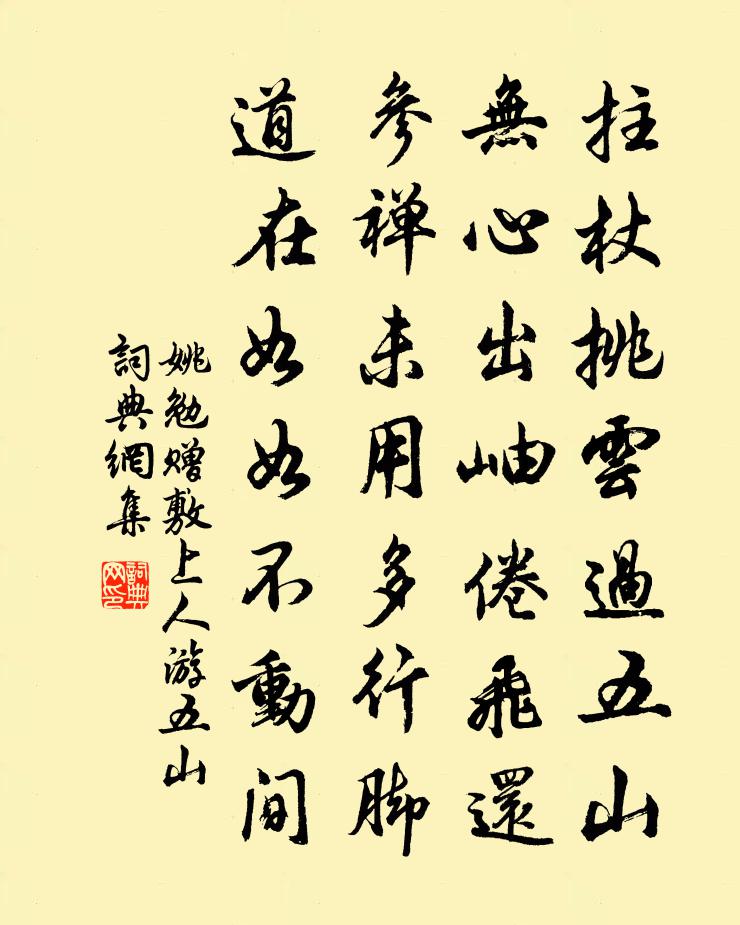 拄杖挑雲過五山
無心出岫倦飛還
參禅未用多行脚
道在如如不動间
姚勉赠敷上人游五山
詞典網集
詞典网印